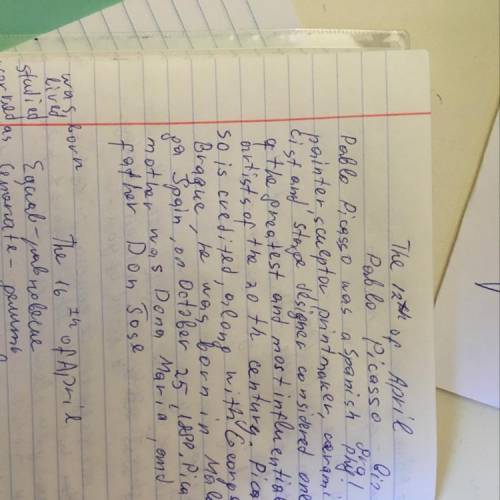 The 12th of April
Pablo Picasso
Pablo Picasso was a Spanish
painter sculptor, printmaker, cerami
cist and stage designer considered one
of the greatest and most influential
artists of the 20 th century. Pica
so is credited, along with Georg
Braque, he was born in Mala
ga Spain, on October 25 Pica
mother was Dona Maria, and
father Don Jose
The 16 th of April
was born
lived
studied Equal -
worked as